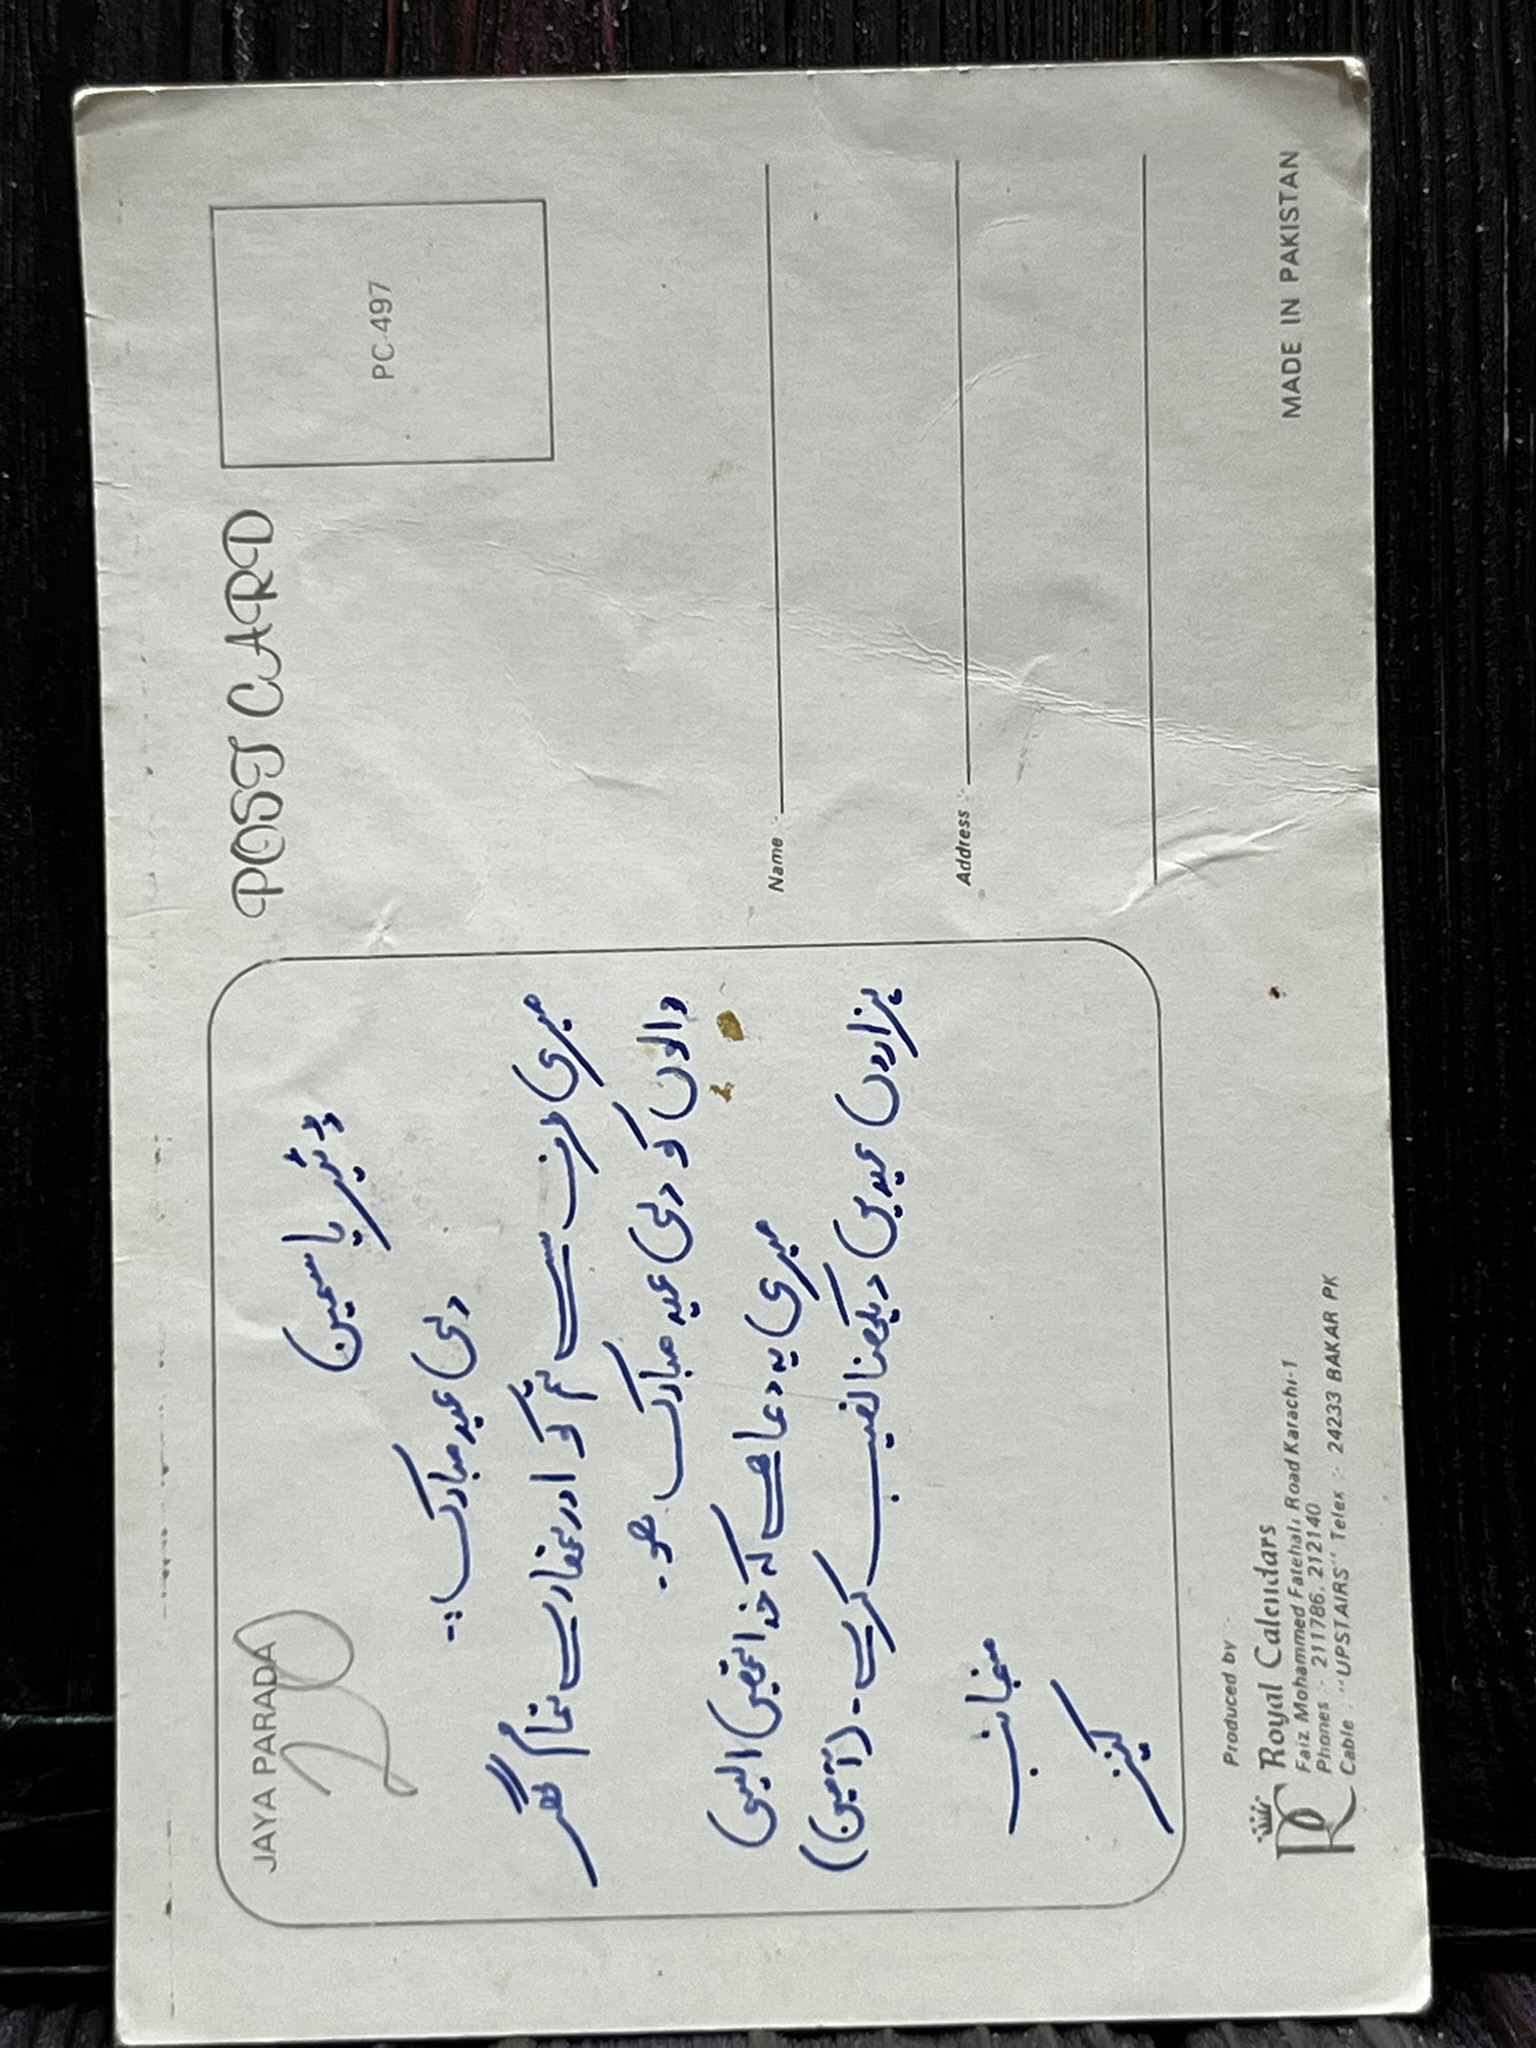 JAYA PARADA
20
ڈئیر یاسمین
دلی عید مبارک :-
میری طرف سے تم کو اور تمھارے تمام گھر
والوں کو دلی عید مبارک ھو۔
میری یہ دعا ھے کہ خدا تمھیں ایسی
ہزاروں عیدیں دیکھنا نصیب کرے۔ (آمین)
منجانب
کنیز
POST CARD
PC-497
Name :-
Address :-
Produced by :-
RC Royal Calendars
Faiz Mohammed Fatehali Road Karachi-1
Phones :- 211786, 212140
Cable : "UPSTAIRS" Telex :- 24233 BAKAR PK
MADE IN PAKISTAN